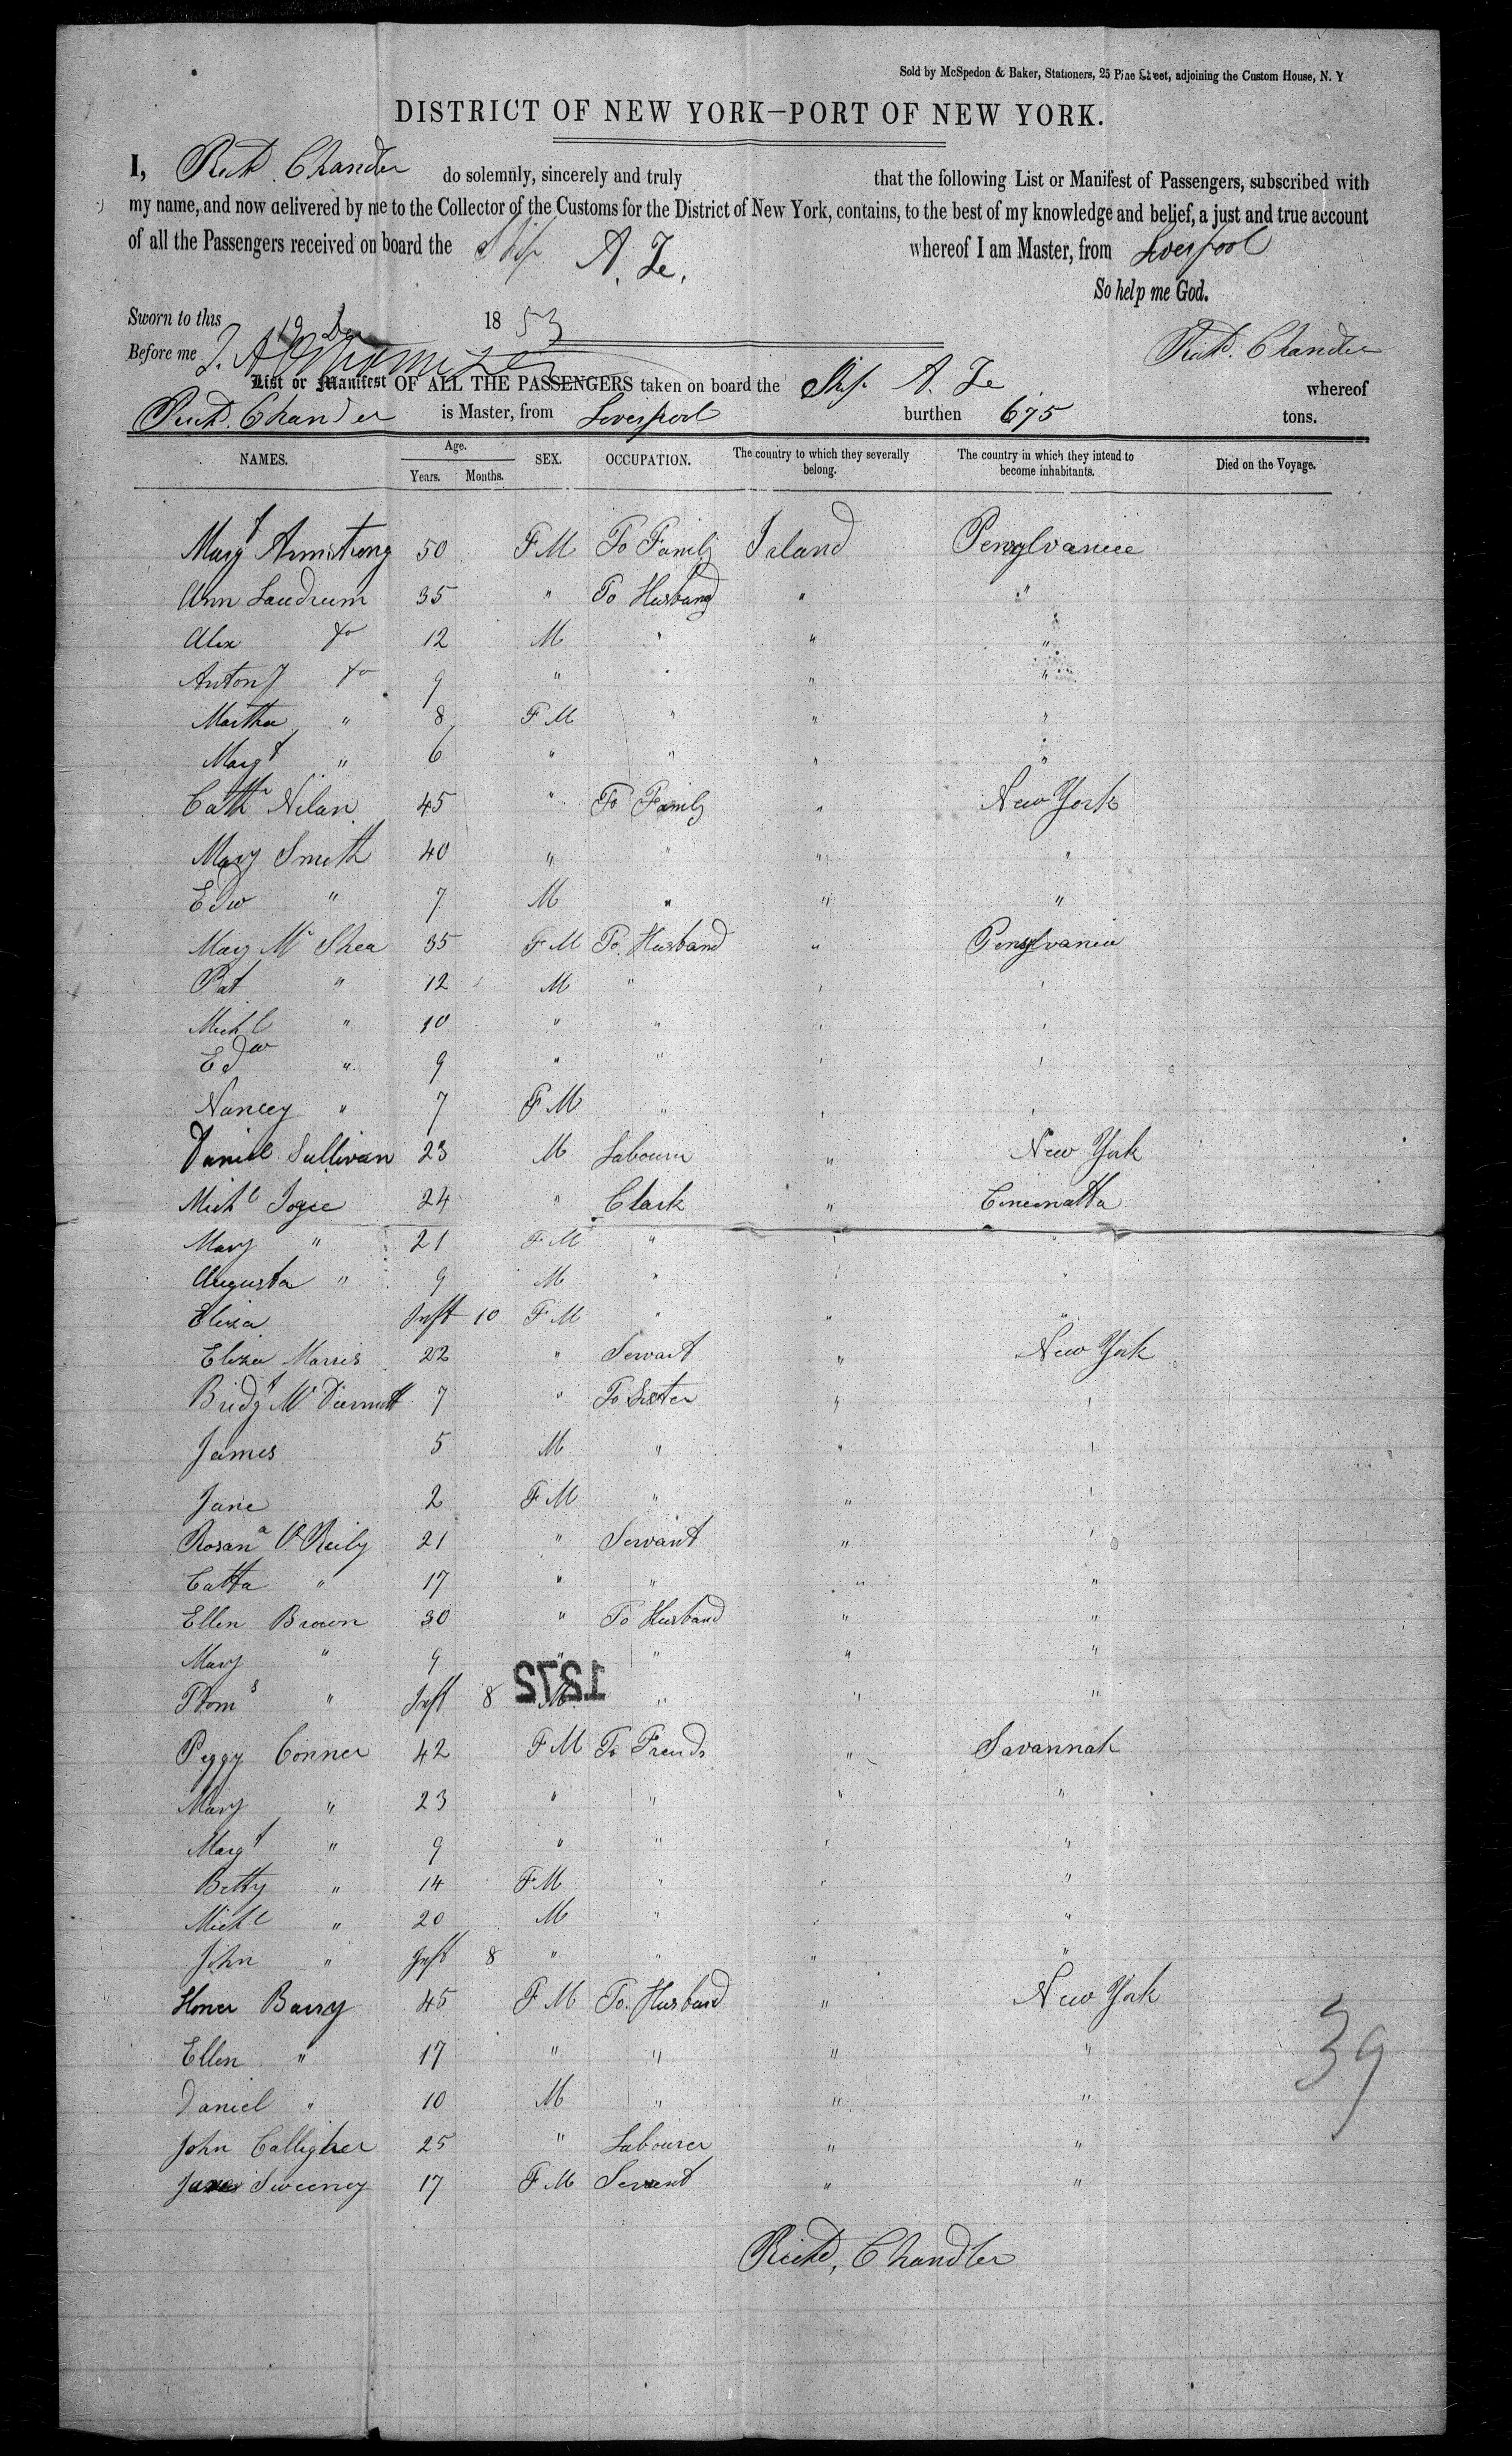 Sold by McSpedon & Baker, Stationers, 25 Pine Street, adjoining the Custom House, N. Y
DISTRICT OF NEW YORK—PORT OF NEW YORK.
I, Richd. Chandler do solemnly, sincerely and truly that the following List or Manifest of Passengers, subscribed with
my name, and now delivered by me to the Collector of the Customs for the District of New York, contains, to the best of my knowledge and belief, a just and true account
of all the Passengers received on board the Ship A. Ze. whereof I am Master, from Liverpool
So help me God.
Sworn to this 19 Dec 1853
Before me Richd. Chandler
List or Manifest OF ALL THE PASSENGERS taken on board the Ship A. Ze whereof
Richd. Chandler is Master, from Liverpool burthen 675 tons.
NAMES. Age. Years. Months. SEX. OCCUPATION. The country to which they severally belong. The country in which they intend to become inhabitants. Died on the Voyage.
Margt Armstrong 50 F M To Family Ireland Pensylvania
Ann Laudrum 35 " To Husband " "
Alex do 12 M " " "
Antony do 9 " " " "
Martha " 8 F M " " "
Margt " 6 " " " "
Cathn Nilan 45 " To Family " New York
Mary Smith 40 " " " "
Edw " 7 M " " "
Mary Mc Shea 35 F M To Husband " Pensylvania
Pat " 12 M " " "
Michl " 10 " " " "
Edw " 9 " " " "
Nancey " 7 F M " " "
Daniel Sullivan 23 M Labourer " New York
Michl Jogie 24 " Clark " Cincinatta
Mary " 21 F M " " "
Augusta " 9 M " " "
Eliza Inft 10 F M " " "
Eliza Morris 22 " Servant " New York
Bridgt Mc Diermott 7 " To Sister " "
James 5 M " " "
Jane 2 F M " " "
Rosana O Reily 21 " Servant " "
Catta " 17 " " " "
Ellen Brown 30 " To Husband " "
Mary " 9 " " " "
1272
Thoms " Inft 8 M " " "
Peggy Conner 42 F M To Freinds " Savannah
Mary " 23 " " " "
Margt " 9 " " " "
Betty " 14 F M " " "
Michl " 20 M " " "
John " Inft 8 " " " "
Honer Barry 45 F M To Husband " New York
Ellen " 17 " " " "
39
Daniel " 10 M " " "
John Calligher 25 " Labourer " "
James Sweeney 17 F M Servent " "
Richd. Chandler